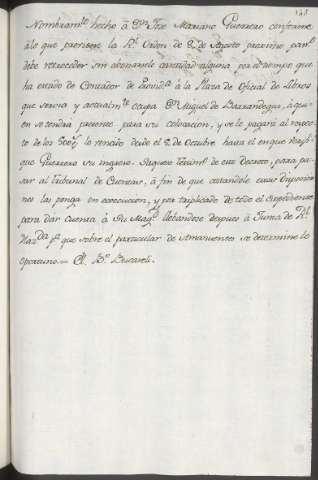 Nombram.to hecho à D.n Jse Mariano Guerrero conforme
à lo que previene la R.l Orden de 2 de Agosto proximo pas.do
debe retroceder sin abonarsele cantidad alguna por el tiempo que
ha estado de Contador de à la Plaza de Oficial de Libros
que servia y actualm.te ocupa D.n Miguel de Barrandegui, à qui-
en se tendrá presente para su colocacion, y se le pagará al respec-
to de los 500 p.s lo vencido desde el 2 de Octubre hasta el en que verifi-
que Guerrero su ingreso. Saquese testim.o de este decreto, para pa-
sar al Tribunal de Cuentas, à fin de que estandole estas disposicio-
nes las ponga en execucion, y por triplicado de todo el Expediente
para dar cuenta à Su Mag.d llebandose despues à Junta de R.l
Haz.da p.a que sobre el particular de Amanuenses se determine lo
oportuno.= El B.o Bucareli.